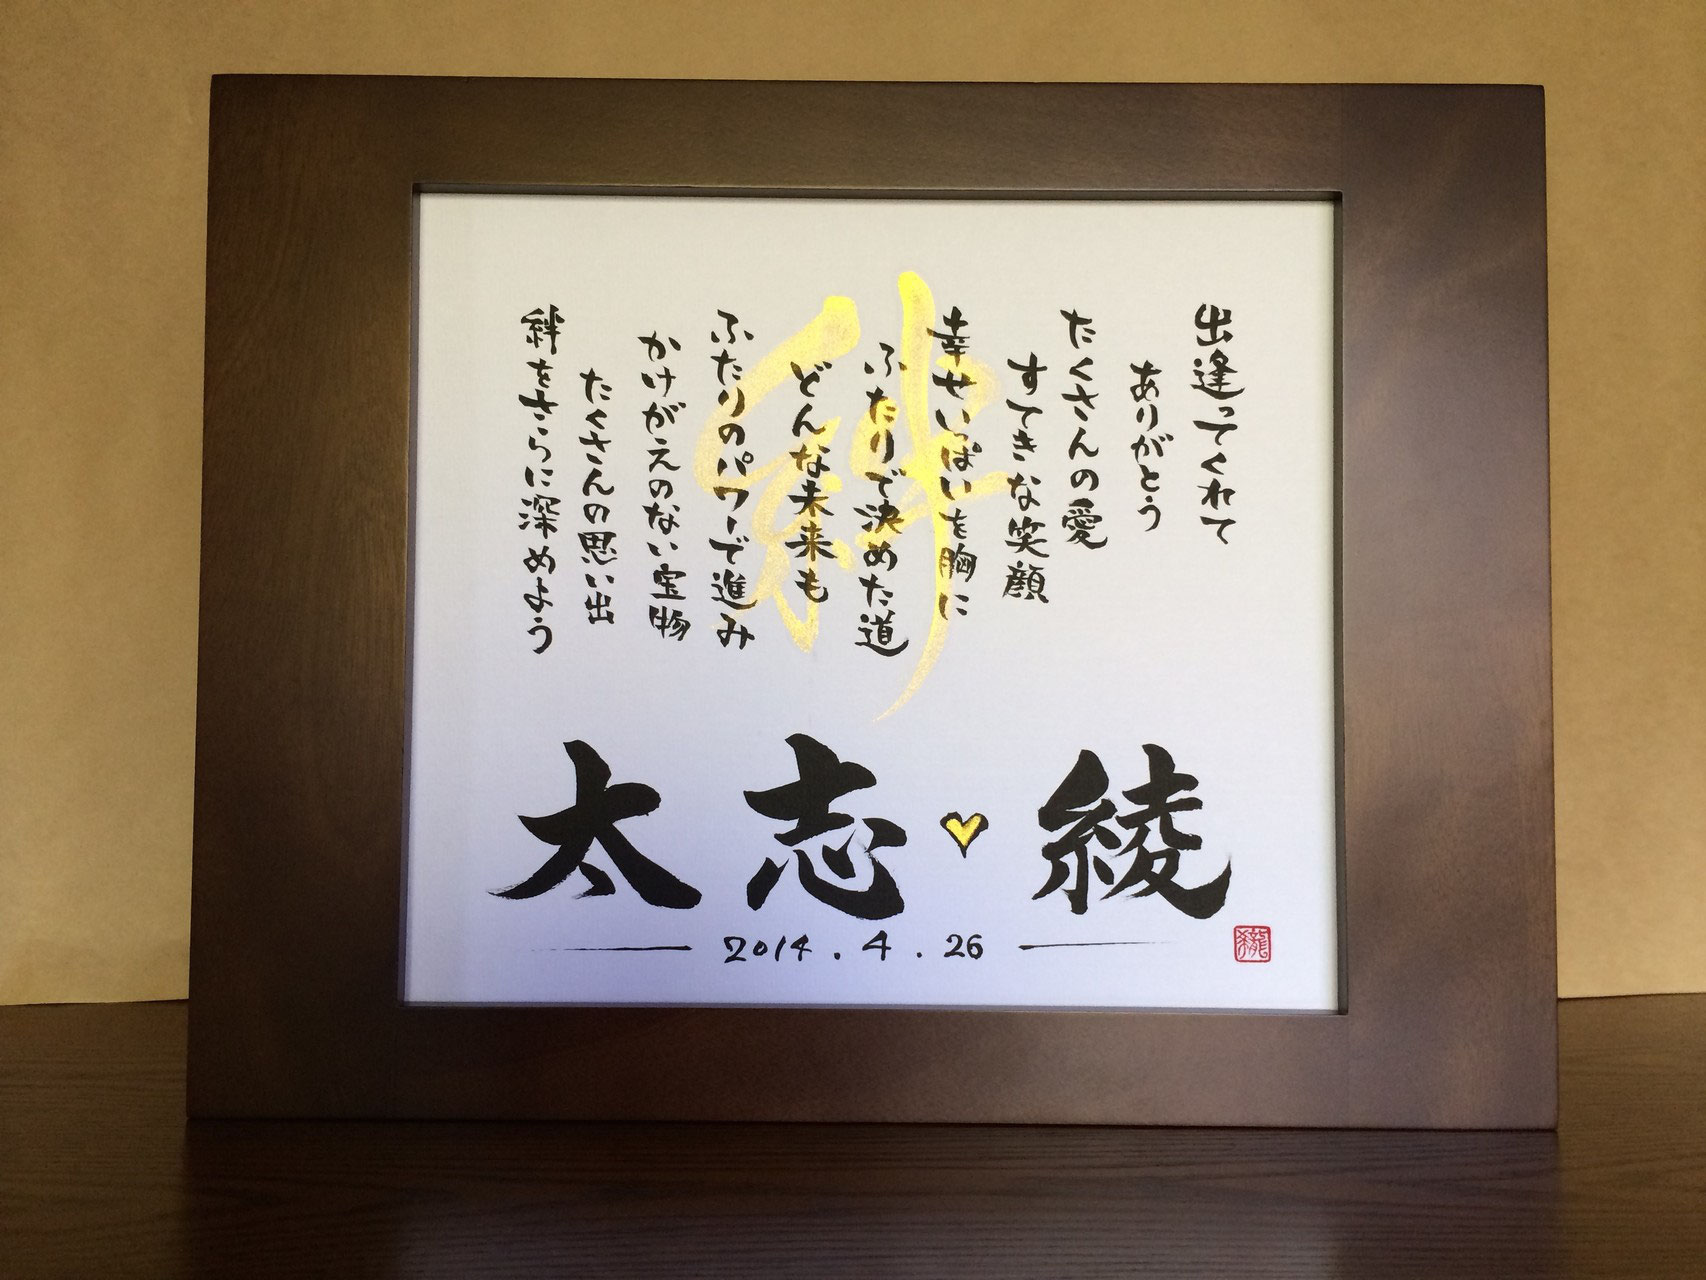 出逢ってくれて
ありがとう
たくさんの愛
すてきな笑顔
幸せいっぱいを胸に
ふたりで決めた道
どんな未来も
ふたりのパワーで進み
かけがえのない宝物
たくさんの思い出
絆をさらに深めよう
絆
太志♥綾
2014.4.26